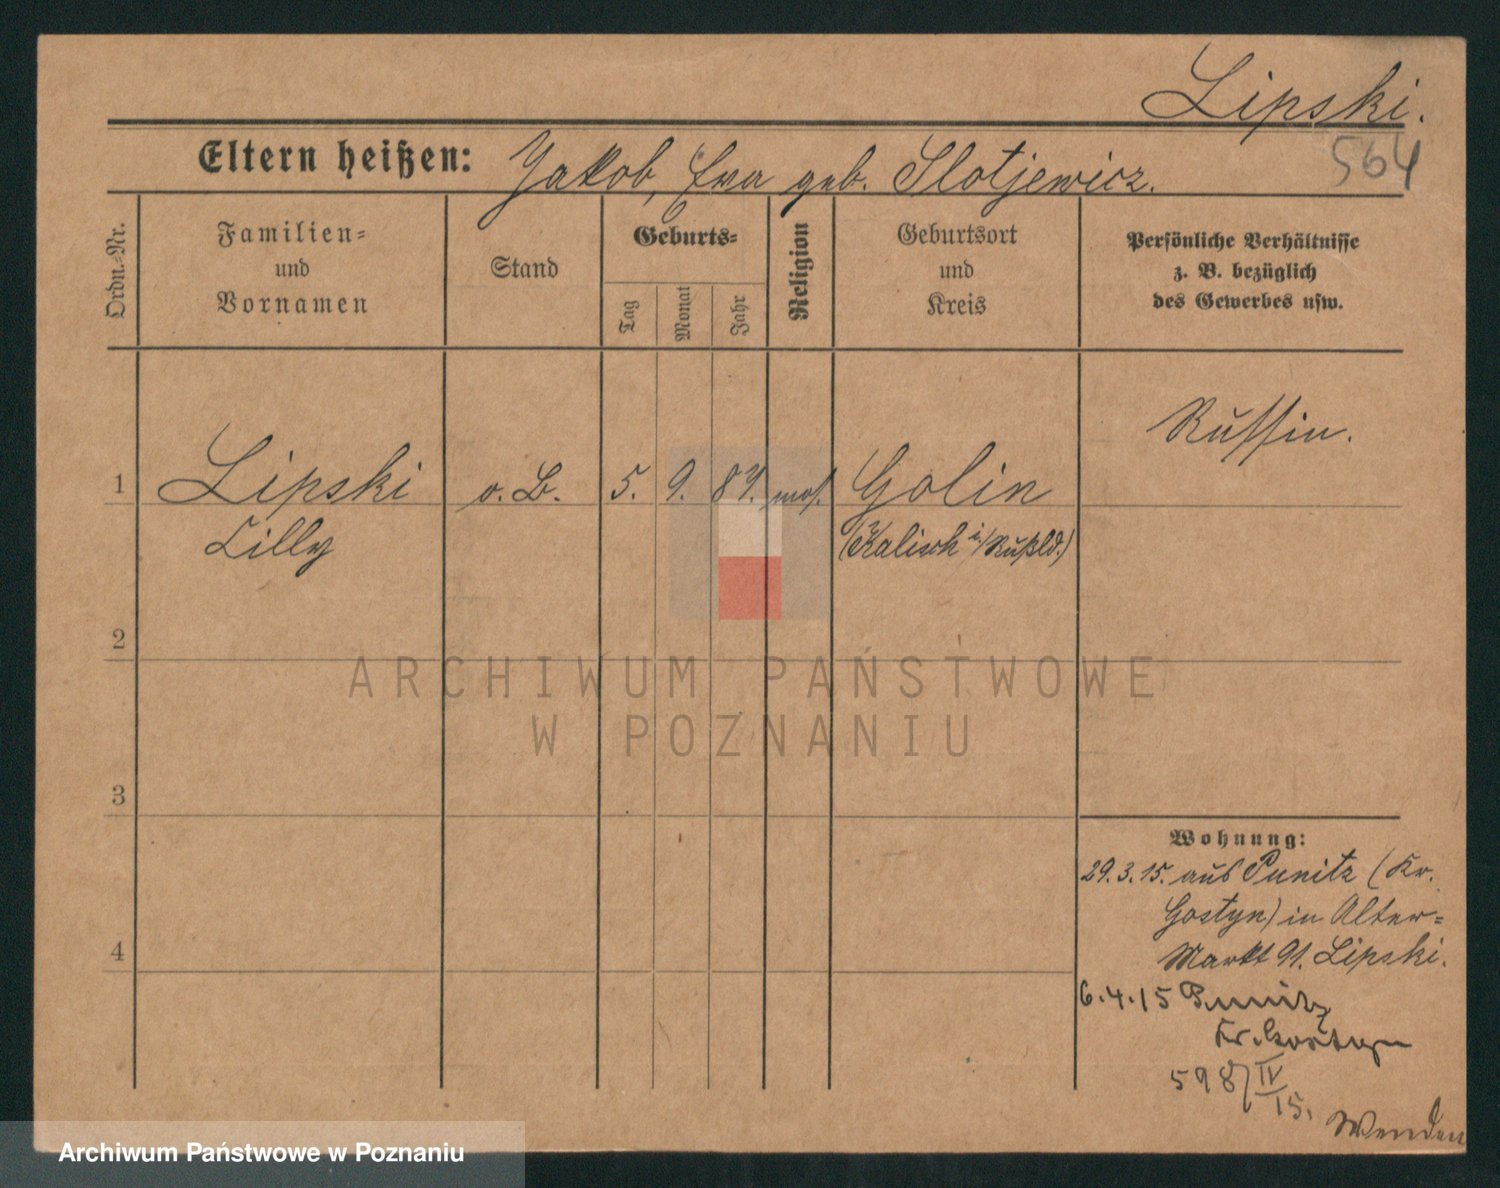 Lipski.
564
Eltern heißen: Jakob, Eva geb. Slotjewicz.
Ordn.-Nr.
Familien-
und
Vornamen
Stand
Geburts-
Tag
Monat
Jahr
Religion
Geburtsort
und
Kreis
Persönliche Verhältnisse
z. B. bezüglich
des Gewerbes usw.
Russin.
1 Lipski o. B. 5. 9. 89. mos. Golin
Cilly (Kalisch i/Rußld.)
2
ARCHIWUM PAŃSTWOWE
W POZNANIU
3
Wohnung:
29.3.15. aus Punitz (Kr.
Gostyn) in Alter-
4 Markt 91. Lipski.
6.4.15 Punitz
Kr. Gostyn
598 IV
15.
Wenden
Archiwum Państwowe w Poznaniu